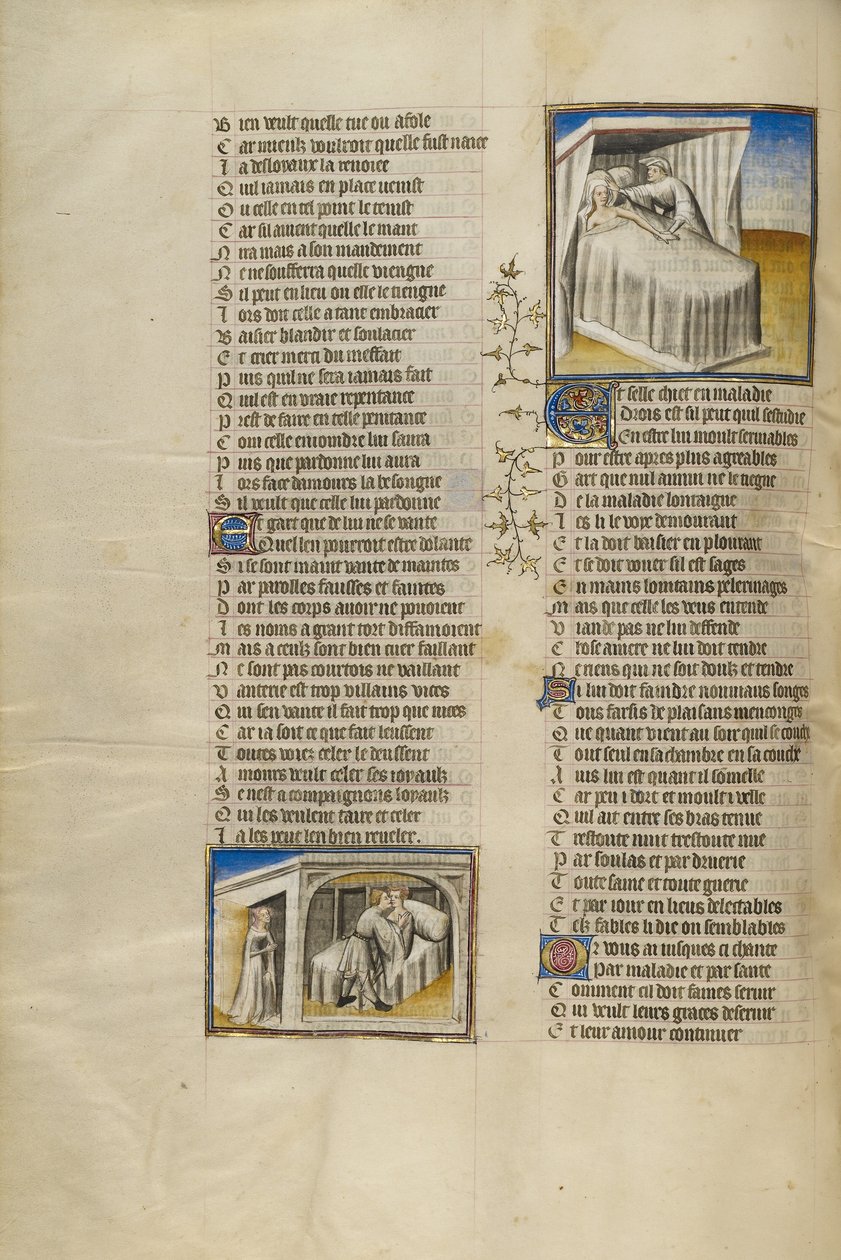 Bien veult quelle tue ou afole
Car mieulx vouldroit quelle fust naiee
Ia desloyaux la renoiee
Quil iamais en place venist
Ou celle en tel point le tenist
Car sil auient quelle le mant
Nira mais a son mandement
Ne ne souffrera quelle viengne
Sil peut en lieu ou elle le tiengne
Lors doit celle a tant embracier
Baisier blandir et soulacier
Et crier merci du meffait
Puis quil ne sera iamais fait
Quil est en vraie repentance
Prest de faire en celle penitance
Com celle enioindre lui saura
Puis que pardonne lui aura
Lors face damours la besongne
Sil veult que celle lui pardonne
Et gart que de lui ne se vante
Quel len pourroit estre dolante
Si se sont maint vante de maintes
Par parolles fausses et faintes
Dont les corps auoir ne pouoient
Les noms a grant tort diffamoient
Mais a ceulx sont bien cuer faillant
Ne sont pas courtois ne vaillant
Vanterie est trop villains vices
Qui sen vante il fait trop que nices
Car ia soit ce que fait leussent
Toutes voiez celer le deussent
Amours veult celer ses ioyaulx
Se nest a compaignons loyaulx
Qui les veulent taire et celer
La les peut len bien reueler.
Et selle chiet en maladie
Drois est sil peut quil sestudie
En estre lui moult seruiables
Pour estre apres plus agreables
Gart que nul annui ne le tiegne
De la maladie lontaigne
Les li le voye demourant
Et la doit baisier en plourant
Et se doit vouer sil est sages
En mains lointains pelerinages
Mais que celle les veus entende
Viande pas ne lui deffende
Chose amere ne lui doit tendre
Ne riens qui ne soit doulx et tendre
Si lui doit faindre nouuiaus songes
Tous farsis de plaisans mencongez
Que quant vient au soir quil se couche
Tout seul en sa chambre en sa couche
Auis lui est quant il somelle
Car peu i dort et moult i velle
Quil ait entre ses bras tenue
Trestoute nuit trestoute nue
Par soulas et par druerie
Toute saine et toute guerie
Et par iour en lieus delectables
Telz fables li die ou semblables
Or vous ai iusques ci chante
Par maladie et par sante
Comment cil doit fames seruir
Qui veult leurs graces deseruir
Et leur amour continuer